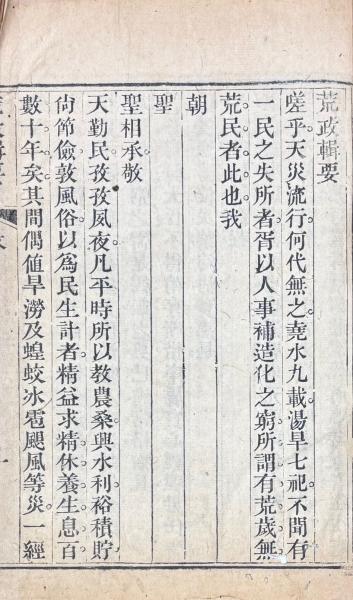 荒政輯要
嗟乎天災流行何代無之堯水九載湯旱七祀不聞有
一民之失所者胥以人事補造化之窮所謂有荒歲無
荒民者此也我
朝
聖
聖相承敬
天勤民孜孜夙夜凡平時所以教農桑興水利裕積貯
尙節儉敦風俗以爲民生計者精益求精休養生息百
數十年矣其間偶値旱澇及蝗蛟冰雹颶風等災一經